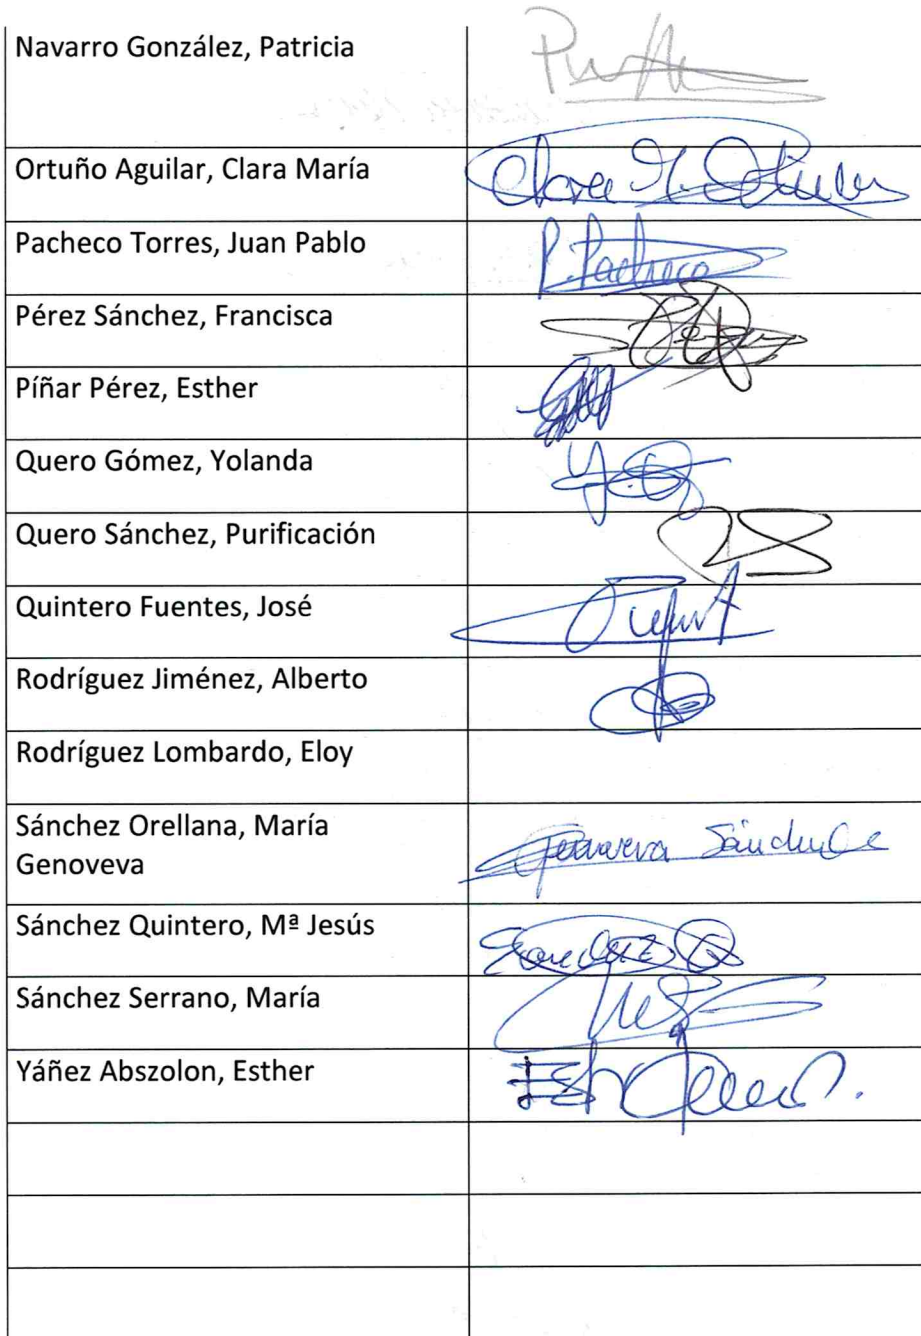 Navarro González, Patricia
Ortuño Aguilar, Clara María
Pacheco Torres, Juan Pablo
P. Pacheco
Pérez Sánchez, Francisca
Píñar Pérez, Esther
Quero Gómez, Yolanda
Quero Sánchez, Purificación
Quintero Fuentes, José
Rodríguez Jiménez, Alberto
Rodríguez Lombardo, Eloy
Sánchez Orellana, María
Genoveva
Genoveva Sánchez
Sánchez Quintero, Mª Jesús
Sánchez Serrano, María
Yáñez Abszolon, Esther